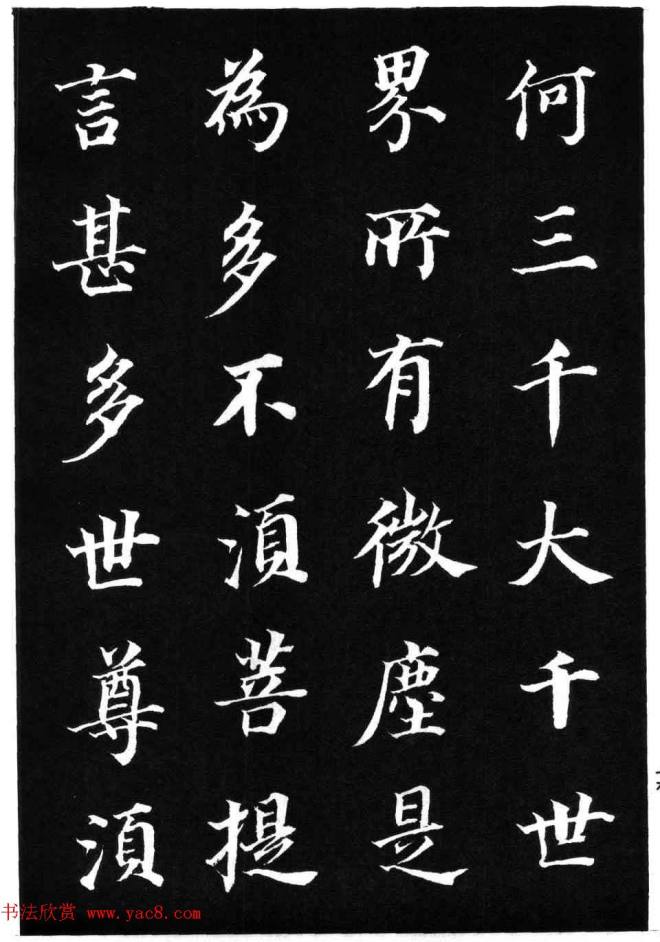 何三千大千世
界所有微塵是
為多不湏菩提
言甚多世尊湏
书法欣赏 www.yac8.com